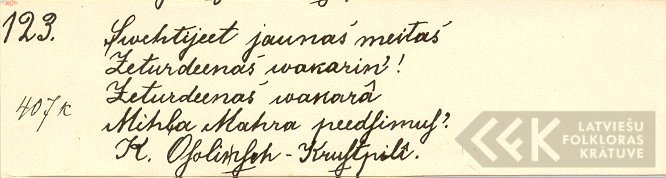 123.
Swehtijeet jaunas meitas
Zeturdeenas wakarin'!
Zeturdeenas wakarâ
407k
Mihļa Mahra peedsimus'.
K. Osolinsch - Krustpilî.
LATVIEŠU
FOLKLORAS
KRĀTUVE